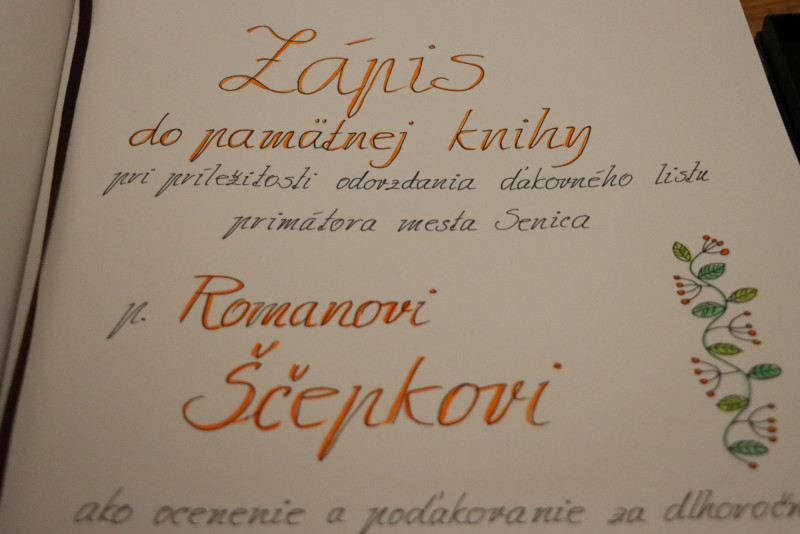 Zápis
do pamätnej knihy
pri príležitosti odovzdania ďakovného listu
primátora mesta Senica
p. Romanovi
Ščepkovi
ako ocenenie a poďakovanie za dlhoročn